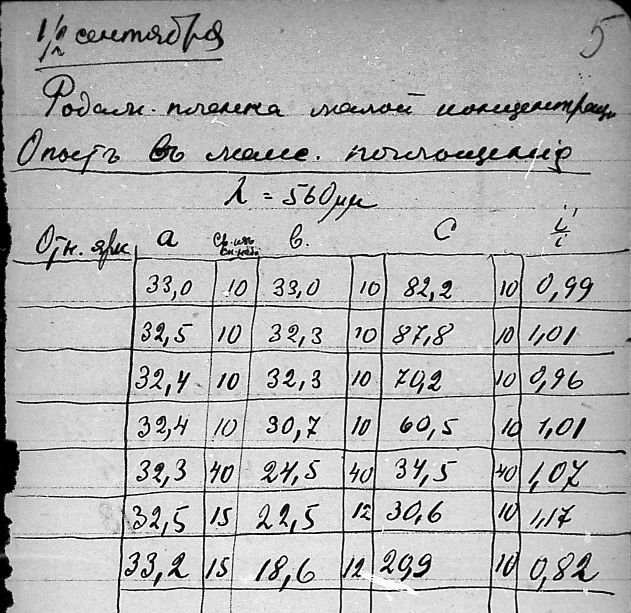 1/II сентября
5
Родам. пленка малой концентрац.
Опыт въ макс. поглощенія
λ = 560 μμ
Отн. ярк. a в. C i'/i
33,0 10 33,0 10 82,2 10 0,99
32,5 10 32,3 10 87,8 10 1,01
32,4 10 32,3 10 70,2 10 0,96
32,4 10 30,7 10 60,5 10 1,01
32,3 40 24,5 40 34,5 40 1,07
32,5 15 22,5 12 30,6 10 1,17
33,2 15 18,6 12 29,9 10 0,82